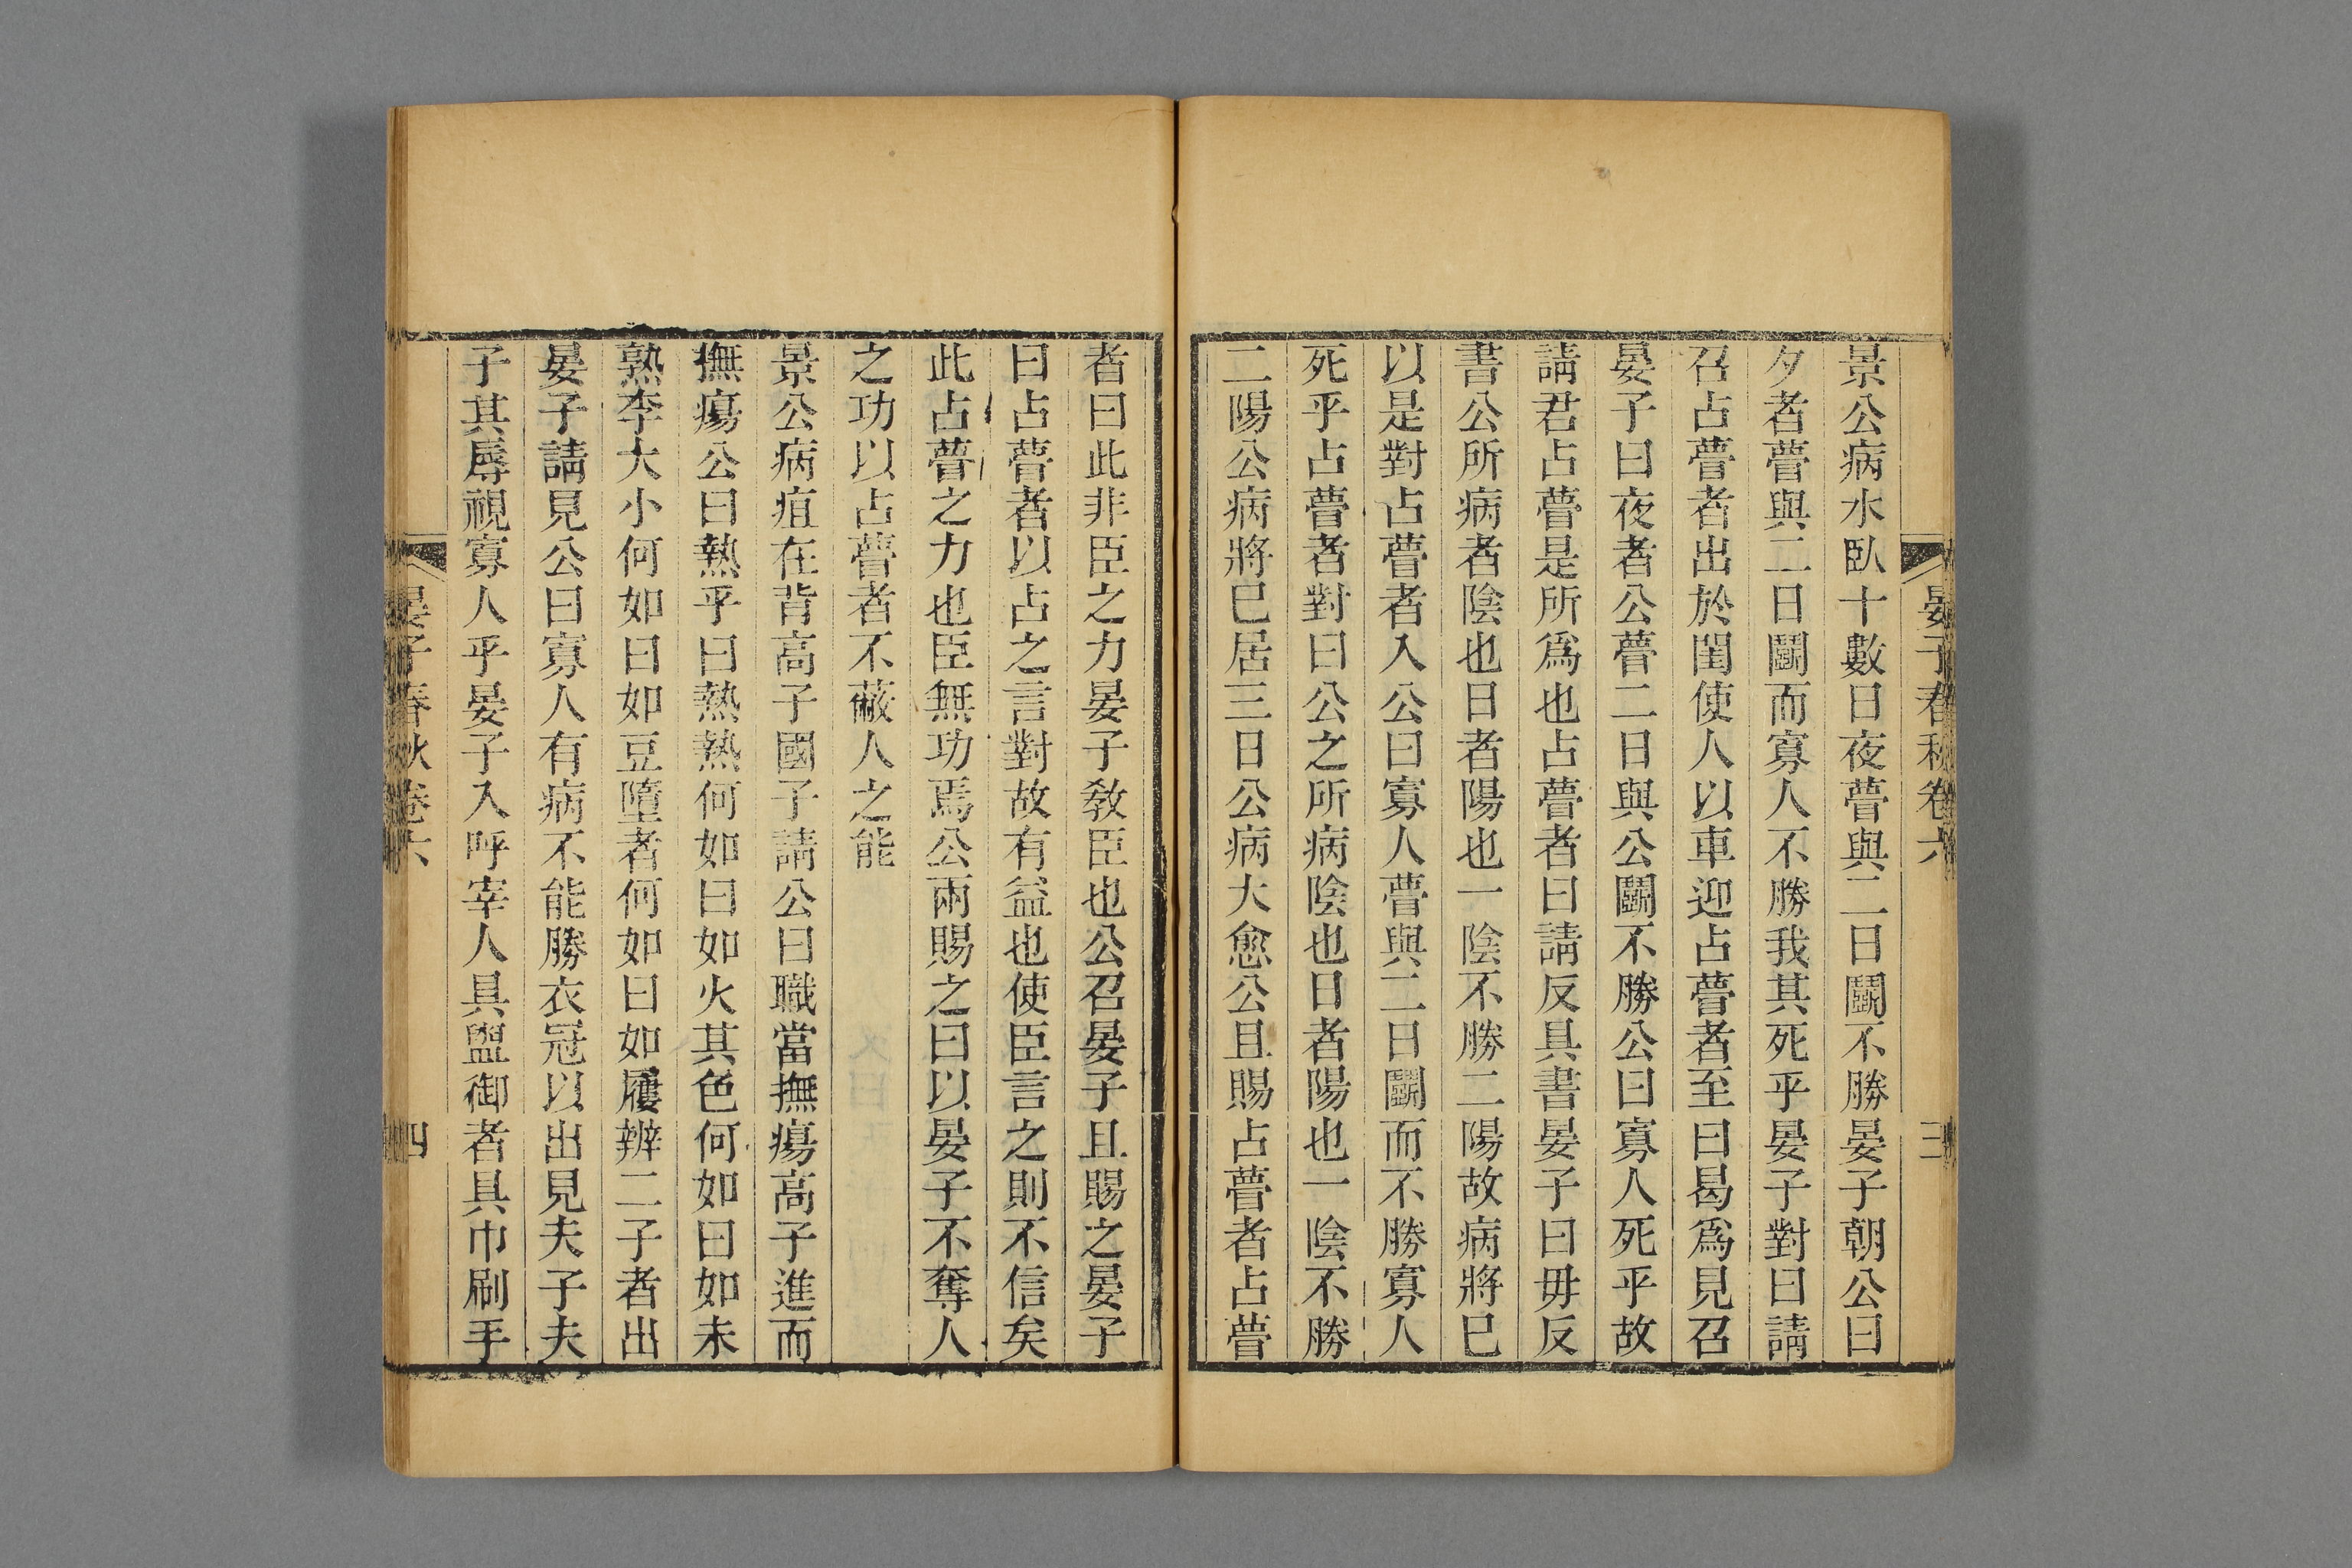 晏子春秋卷六 三
景公病水臥十數日夜瞢與二日鬭不勝晏子朝公曰
夕者瞢與二日鬭而寡人不勝我其死乎晏子對曰請
召占瞢者出於閨使人以車迎占瞢者至曰曷爲見召
晏子曰夜者公瞢二日與公鬭不勝公曰寡人死乎故
請君占瞢是所爲也占瞢者曰請反具書晏子曰毋反
書公所病者陰也日者陽也一陰不勝二陽故病將巳
以是對占瞢者入公曰寡人瞢與二日鬭而不勝寡人
死乎占瞢者對曰公之所病陰也日者陽也一陰不勝
二陽公病將巳居三日公病大愈公且賜占瞢者占瞢
者曰此非臣之力晏子敎臣也公召晏子且賜之晏子
曰占瞢者以占之言對故有益也使臣言之則不信矣
此占瞢之力也臣無功焉公兩賜之曰以晏子不奪人
之功以占瞢者不蔽人之能
景公病疽在背高子國子請公曰職當撫瘍高子進而
撫瘍公曰熱乎曰熱熱何如曰如火其色何如曰如未
熟李大小何如曰如豆墮者何如曰如屨辨二子者出
晏子請見公曰寡人有病不能勝衣冠以出見夫子夫
子其辱視寡人乎晏子入呼宰人具盥御者具巾刷手
晏子春秋卷六 四